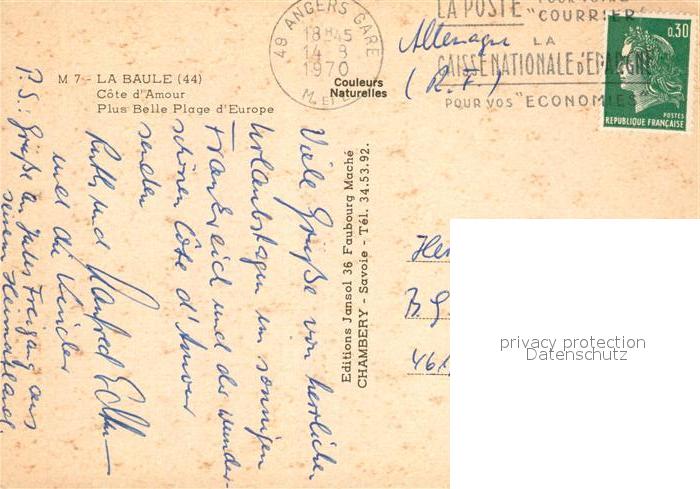 M 7 - LA BAULE (44)
Côte d'Amour
Plus Belle Plage d'Europe
Couleurs
Naturelles
49 ANGERS GARE
18H45
14 - 8
1970
M. ET L.
LA POSTE POUR VOTRE
"COURRIER"
LA
CAISSE NATIONALE D'EPARGNE
POUR VOS "ECONOMIES"
0,30
POSTES
REPUBLIQUE FRANÇAISE
Allemagne
(R.F.)
Viele Grüße von herrlichen
Urlaubstagen im sonnigen
Frankreich und der wunder-
schönen Côte d'Amour
senden
Ruth und Manfred
und die Kinder
P.S.: Grüße an
seinem Heimatland.
Editions Jansol 36 Faubourg Maché
CHAMBERY - Savoie - Tél. 34.53.92.
privacy protection
Datenschutz